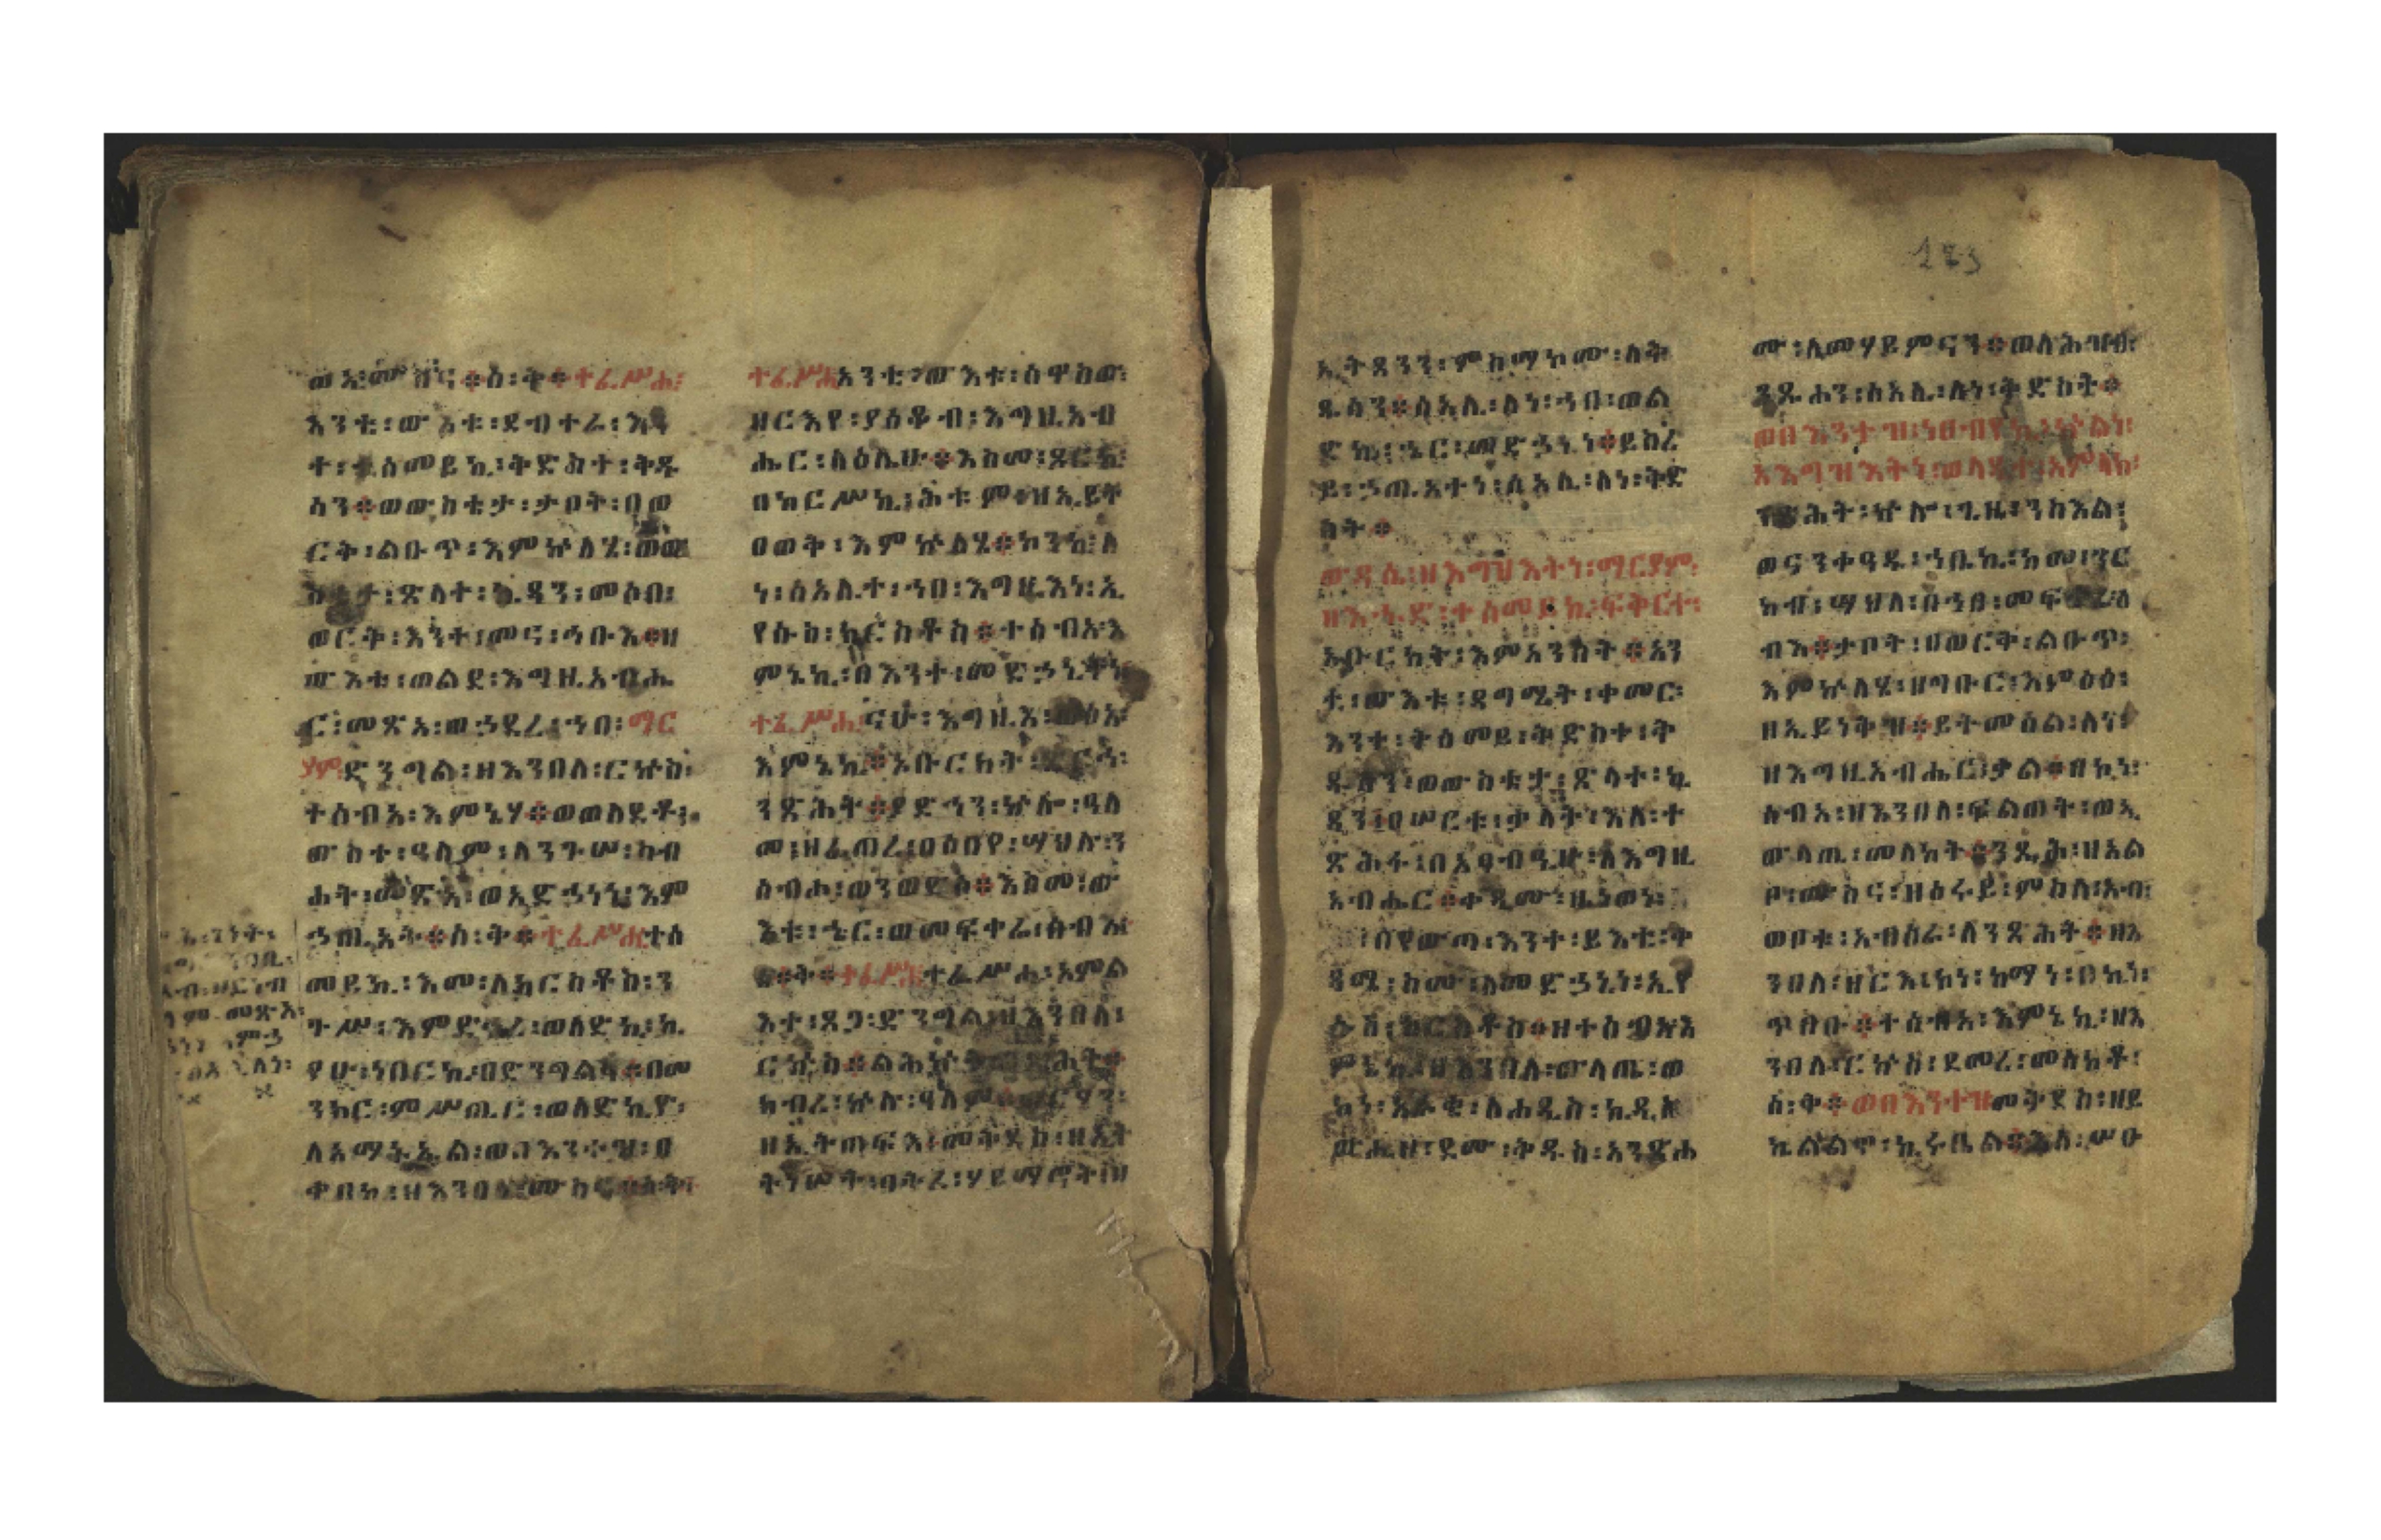 እንቲ፡ውእቱ፡ደብተራ፡እን
ተ፡ተሰመይኪ፡ቅድስተ፡ቅዱ
ሳን፨ወውስቴታ፡ታቦት፡በወ
ርቅ፡ልቡጥ፡እምኵለሄ፡ወው
ጽላተ፡ኪዳን፡መሶበ፡
ወርቅ፡እንተ፡መና፡ኅቡእ፨ዘ
ውእቱ፡ወልደ፡እግዚአብሔ
ር፡መጽአ፡ወኃደረ፡ኀበ፡ማር
ያም፡ድንግል፡ዘእንበለ፡ርኵስ፡
ተሰብአ፡እምኔሃ፨ወወለደቶ፡
ውስተ፡ዓለም፡ለንጉሠ፡ስብ
ሐት፡መጽአ፡ወአድኃነነ፡እም
ኃጢአት፨ሰ፡ቅ፨ተፈሥሒ፡ተሰ
መይኪ፡እመ፡ለክርስቶስ፡ን
ጉሥ፡እምድኅረ፡ወለድኪ፡ኪ
ያሁ፡ነበርኪ፡በድንግልና፨በመ
ንክር፡ምሥጢር፡ወለድኪዮ፡
ለአማኑኤል፡ወበእንተዝ፡ዐ
ቀበኪ፡ዘእንበለ፡ሙስና፨ሰ፡ቅ፡
ተፈሥሒ፡አንቲ፡ውእቱ፡ሰዋስው፡
ዘርእየ፡ያዕቆብ፡እግዚአብ
ሔር፡ለዕሌሁ፨እስመ፡ጾርኪ፡
በከርሥኪ፡ሕቱም፡ዘኢይት
ዐወቅ፡እምኵለሄ፨ኮንኪ፡ለ
ነ፡ሰአሊተ፡ኀበ፡እግዚእነ፡ኢ
የሱስ፡ክርስቶስ፨ተሰብአ፡እ
ምኔኪ፡በእንተ፡መድኃኒትነ
ተፈሥሒ፡ናሁ፡እግዚእ፡ወፅአ፡
እምኔኪ፨ኦቡርክት፡
ንጽሕት፨ያድኅን፡ኵሎ፡ዓለ
መ፡ዘፈጠረ፡በዕበየ፡ሣህሉ፡ን
ሰብሖ፡ወንወድሶ፨እስመ፡ው
እቱ፡ኄር፡ወመፍቀሬ፡ሰብእ፡
ሰ፨ቅ፨ተፈሥሒ፡ተፈሥሒ፡አምል
እተ፡ጸጋ፡ድንግል፡ዘእንበለ፡
ርኵስ፨
ክብረ፡ኵሉ፡ዓለም፨
ዘኢትጠፍእ፡መቅደስ፡ዘኢት
ትነሠት፡በትረ፡ሃይማኖት፡ዘ
ኢትጸንን፡ምስማኮሙ፡ለቅ
ዱሳን፨ሰአሊ፡ለነ፡ኀበ፡ወል
ድኪ፡ኄር፡መድኃኒነ፨ይስረ
ይ፡ኃጢአተነ፡ሰአሊ፡ለነ፡ቅድ
ስት፨
ውዳሴ፡ዘእግዝእትነ፡ማርያም፡
ዘእሑድ፡ተሰመይኪ፡ፍቅርተ፡
ኦቡርክት፡እምአንስት፨አን
ቲ፡ውእቱ፡ዳግሚት፡ቀመር፡
እንተ፡ትሰመይ፡ቅድስተ፡ቅ
ዱሳን፡ወውስቴታ፡ጽላተ፡ኪ
ዳን፡ዐሠርቱ፡ቃላት፡እለ፡ተ
ጽሕፋ፡በአፃብዒሁ፡ለእግዚ
አብሔር፨ቀዲሙ፡ዜነወነ፡
በየውጣ፡እንተ፡ይእቲ፡ቀ
ዳሚ፡ስሙ፡ለመድኃኒነ፡ኢየ
ሱስ፡ክርስቶስ፨ዘተሰብአ፡እ
ምኔኪ፡ዘእንበለ፡ውላጤ፡ወ
ኮነ፡አራቂ፡ለሐዲስ፡ኪዳን
ውሒዘ፡ደሙ፡ቅዱስ፡አንጽሖ
ሙ፡ለመሃይምናን፨ወለሕዝብ፡
ንጹሐን፡ሰአሊ፡ለነ፡ቅድስት፨
ወበእንተ፡ዝ፡ነዐብየኪ፡ኵልነ፡
እእግዝእትነ፡ወላዲተ፡አምላክ፡
ንጽሕት፡ኵሎ፡ጊዜ፡ንስእል፡
ወናንቀዓዱ፡ኀቤኪ፡ከመ፡ንር
ከብ፡ሣህለ፡በኀበ፡መፍቀሬ፡ሰ
ብእ፨ታቦት፡በወርቅ፡ልቡጥ፡
እምኵለሄ፡ዘግቡር፡እምዕፅ፡
ዘኢይነቅዝ፨ይትመሰል፡ለነ፡
ዘእግዚአብሔር፡ቃል፨ዘኮነ፡
ሰብአ፡ዘእንበለ፡ፍልጠት፡ወኢ
ውላጤ፡መለኮት፨ንጹሕ፡ዘአል
ቦ፡ሙስና፡ዘዕሩይ፡ምስለ፡አብ፡
ወቦቱ፡አብሰራ፡ለንጽሕት፨ዘእ
ንበለ፡ዘርእ፡ኮነ፡ከማነ፡በኪነ፡
ጥበቡ፨ተሰብአ፡እምኔኪ፡ዘእ
ንበለ፡ርኵስ፡ደመረ፡መለኮቶ፡
ሰ፡ቅ፨ወበእንተዝ፡መቅደስ፡ዘይ
ኬልልዎ፡ኪሩቤል፨እለ፡ሥዑ